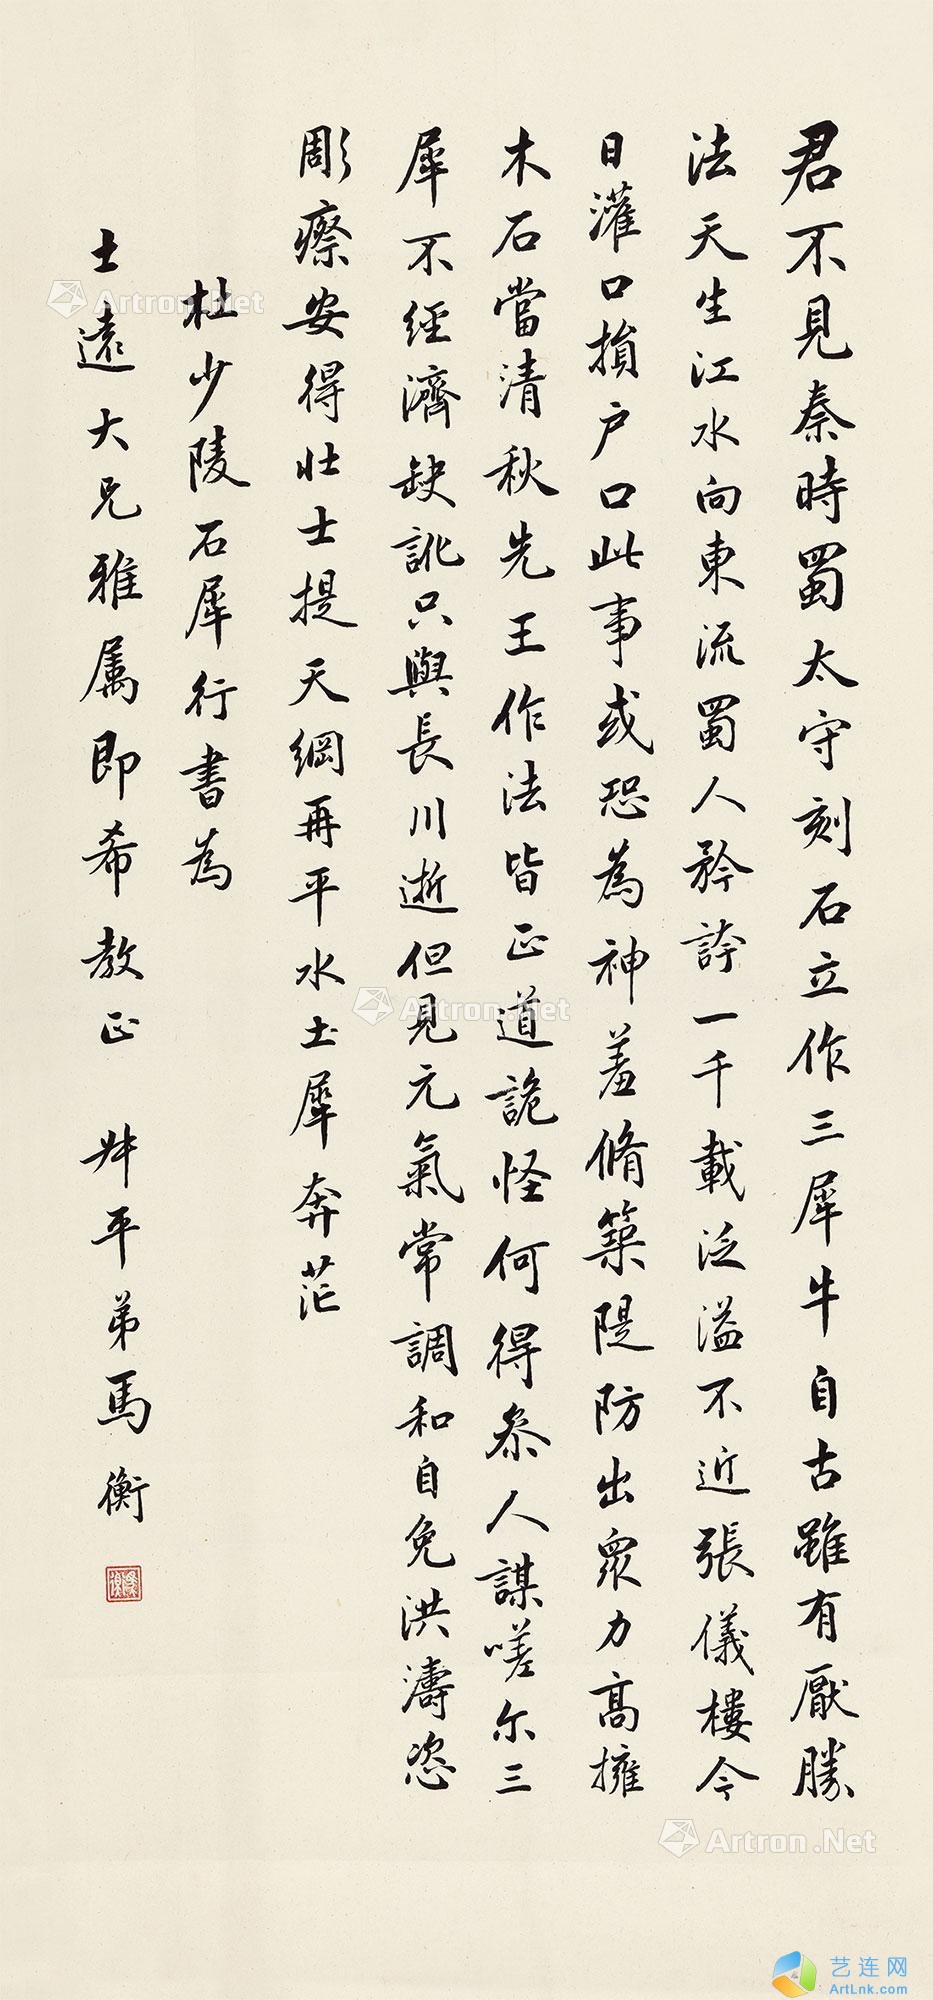 君不見秦時蜀太守刻石立作三犀牛自古雖有厭勝
法天生江水向東流蜀人矜誇一千載泛溢不近張儀樓今
日灌口損户口此事或恐為神羞脩築隄防出眾力高擁
木石當清秋先王作法皆正道詭怪何得參人謀嗟尔三
犀不經濟缺訛只與長川逝但見元氣常調和自免洪濤恣
彫瘵安得壯士提天綱再平水土犀奔茫
杜少陵石犀行書為
士遠大兄雅属即希教正 尗平弟馬衡
Artron.Net
Artron.Net
Artron.Net
艺连网
ArtLnk.com